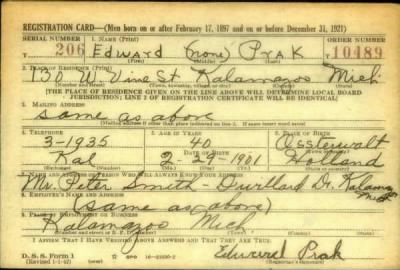 REGISTRATION CARD—(Men born on or after February 17, 1897 and on or before December 31, 1921)
SERIAL NUMBER 1. NAME (Print) ORDER NUMBER
206 Edward (none) Prak 10489
(First) (Middle) (Last)
2. PLACE OF RESIDENCE (Print)
130 W. Vine St Kalamazoo Mich
(Number and street) (Town, township, village, or city) (County) (State)
[THE PLACE OF RESIDENCE GIVEN ON THE LINE ABOVE WILL DETERMINE LOCAL BOARD
JURISDICTION; LINE 2 OF REGISTRATION CERTIFICATE WILL BE IDENTICAL]
3. MAILING ADDRESS
same as above
[Mailing address if other than place indicated on line 2. If same insert word same]
4. TELEPHONE 5. AGE IN YEARS 6. PLACE OF BIRTH
3-1935 40
DATE OF BIRTH
Kal 2-29-1901 Holland
(Exchange) (Number) (Mo.) (Day) (Yr.) (State or country)
7. NAME AND ADDRESS OF PERSON WHO WILL ALWAYS KNOW YOUR ADDRESS
Mr. Peter Smith - Dr. Kalamazoo Mich
8. EMPLOYER'S NAME AND ADDRESS
(same as above)
9. PLACE OF EMPLOYMENT OR BUSINESS
Kalamazoo Mich
(Number and street or R. F. D. number) (Town) (County) (State)
I AFFIRM THAT I HAVE VERIFIED ABOVE ANSWERS AND THAT THEY ARE TRUE.
D. S. S. Form 1
(Revised 1-1-42) (over) GPO 16-21630-2 Edward Prak
(Registrant's signature)